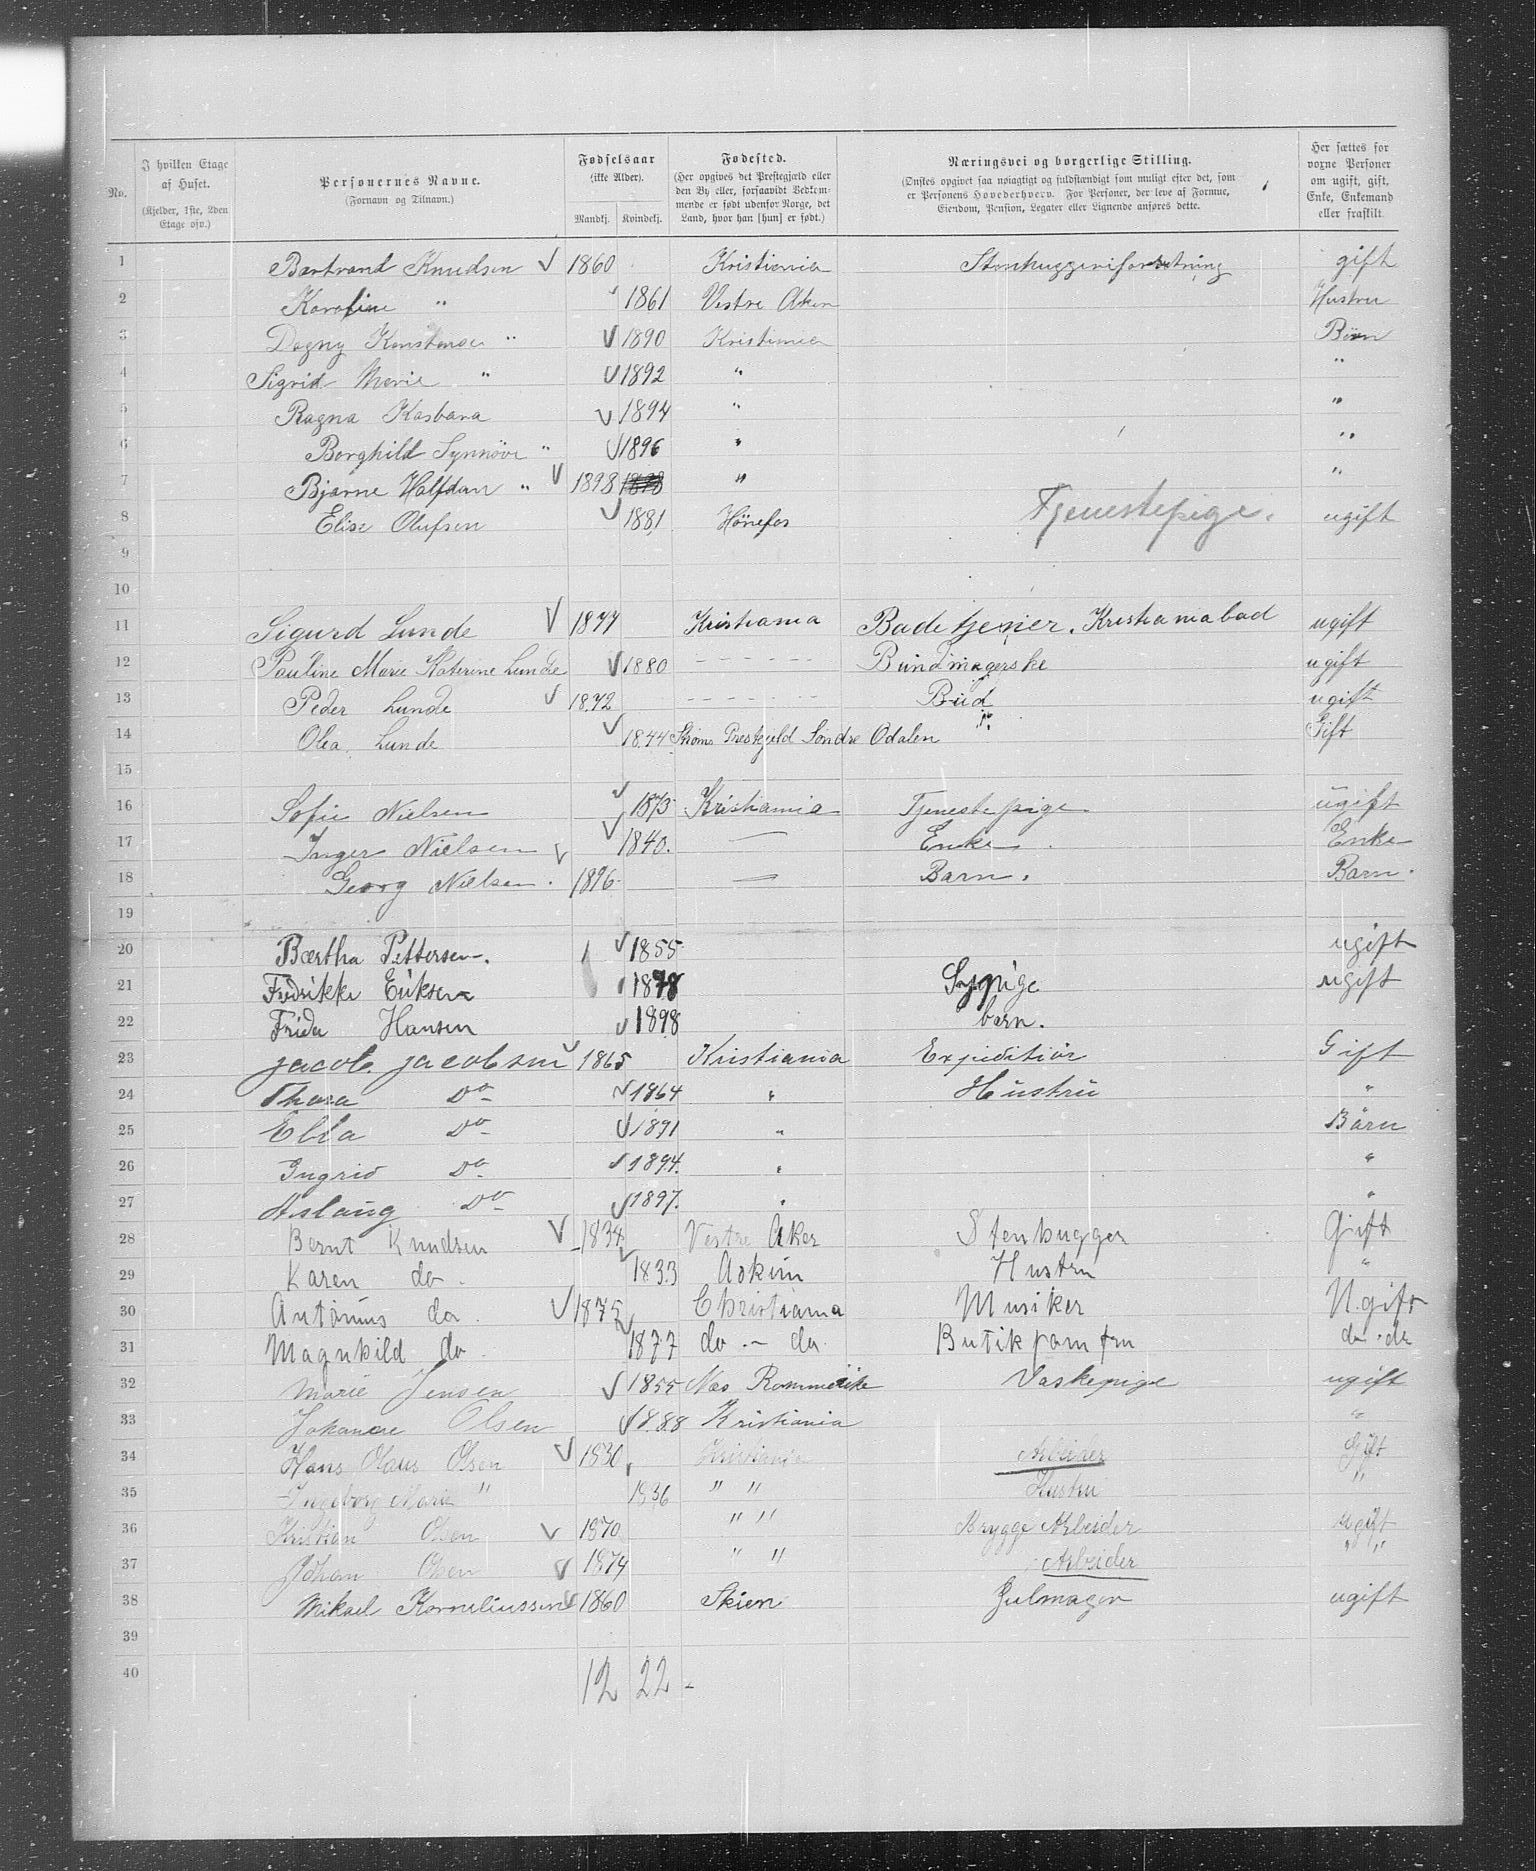 No. | I hvilken Etage af Huset. (Kjelder, 1ste, 2den Etage osv.) | Personernes Navne. (Fornavn og Tilnavn.) | Fødselsaar (ikke Alder). Mandkj. Kvindekj. | Fødested. (Her opgives det Prestegjæld eller den By eller, forsaavidt Vedkommende er født udenfor Norge, det Land, hvor han [hun] er født.) | Næringsvei og borgerlige Stilling. (Ønskes opgivet saa nøiagtigt og fuldstændigt som muligt efter det, som er Personens Hovederhverv. For Personer, der leve af Formue, Eiendom, Pension, Legater eller Lignende anføres dette. | Her sættes for voxne Personer om ugift, gift, Enke, Enkemand eller fraskilt.
1 Bertrand Knudsen 1860 Kristiania Stenhuggeriforretning gift
2 Karoline " 1861 Vestre Aker Hustru
3 Dagny Konstanse " 1890 Kristiania Børn
4 Sigrid Marie " 1892 " "
5 Ragna Kasbara 1894 " "
6 Borghild Synnøve " 1896 " "
7 Bjarne Halfdan " 1898 1898 " "
8 Elise Olufsen 1881 Hönefos Tjenestepige. ugift
9
10
11 Sigurd Lunde 1877 Kristiania Badetjener. Kristianiabad ugift
12 Pauline Marie Katerine Lunde 1880 - - - - - Bundmagerske ugift
13 Peder Lunde 1872 - - - - - - Bud ugift
14 Olea Lunde 1844 Ströms Prestgjeld Söndre Odalen " Gift
15
16 Sofie Nielsen 1873 Kristiania Tjenestepige ugift
17 Inger Nielsen 1840. — Enke Enke
18 Georg Nielsen. 1896 — Barn. Barn.
19
20 Bærtha Pettersen. 1855 ugift
21 Fredrikke Eriksen 1878 Sypige ugift
22 Frida Hansen 1898 barn.
23 Jacob. Jacobsen 1865 Kristiania Expeditiör Gift
24 Thora Do 1864 " Hustru "
25 Ebba Do 1891 " Börn
26 Ingrid Do 1894. " "
27 Aslaug Do 1897. " "
28 Bernt Knudsen 1834 Vestre Aker Stenhugger Gift
29 Karen do. 1833 Askim Hustru "
30 Antonius do. 1875 Christiania Musiker U.gift
31 Magnhild do 1877 do. - do. Butikjomfru do. do
32 Marie Jensen 1855 Næs Rommerike Vaskepige ugift
33 Johanne Olsen 1888 Kristiania "
34 Hans Olaus Olsen 1830 Kristiania Arbeider Gift
35 Ingeborg Marie " 1836 " " Hustru "
36 Kristian Olsen 1870 " " Brygge Arbeider ugift
37 Johan Olsen 1874 " " Arbeider " "
38 Mikael Korneliussen 1860 Skien Gulmager ugift
39
40 12 22 -